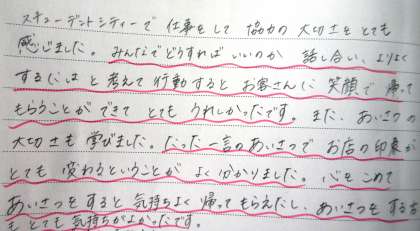 スチューデントシティーで 仕事をして 協力の大切さをとても
感じました。みんなでどうすればいいのか 話し合い、よりよく
するには と考えて行動すると お客さんに笑顔で帰って
もらうことができて とてもうれしかったです。また、あいさつの
大切さも学びました。たった一言のあいさつで お店の印象が
とても 変わるということが よく分かりました。心をこめて
あいさつをすると 気持ちよく帰ってもらえたし、あいさつをする方
も とても気持ちがよかったです。